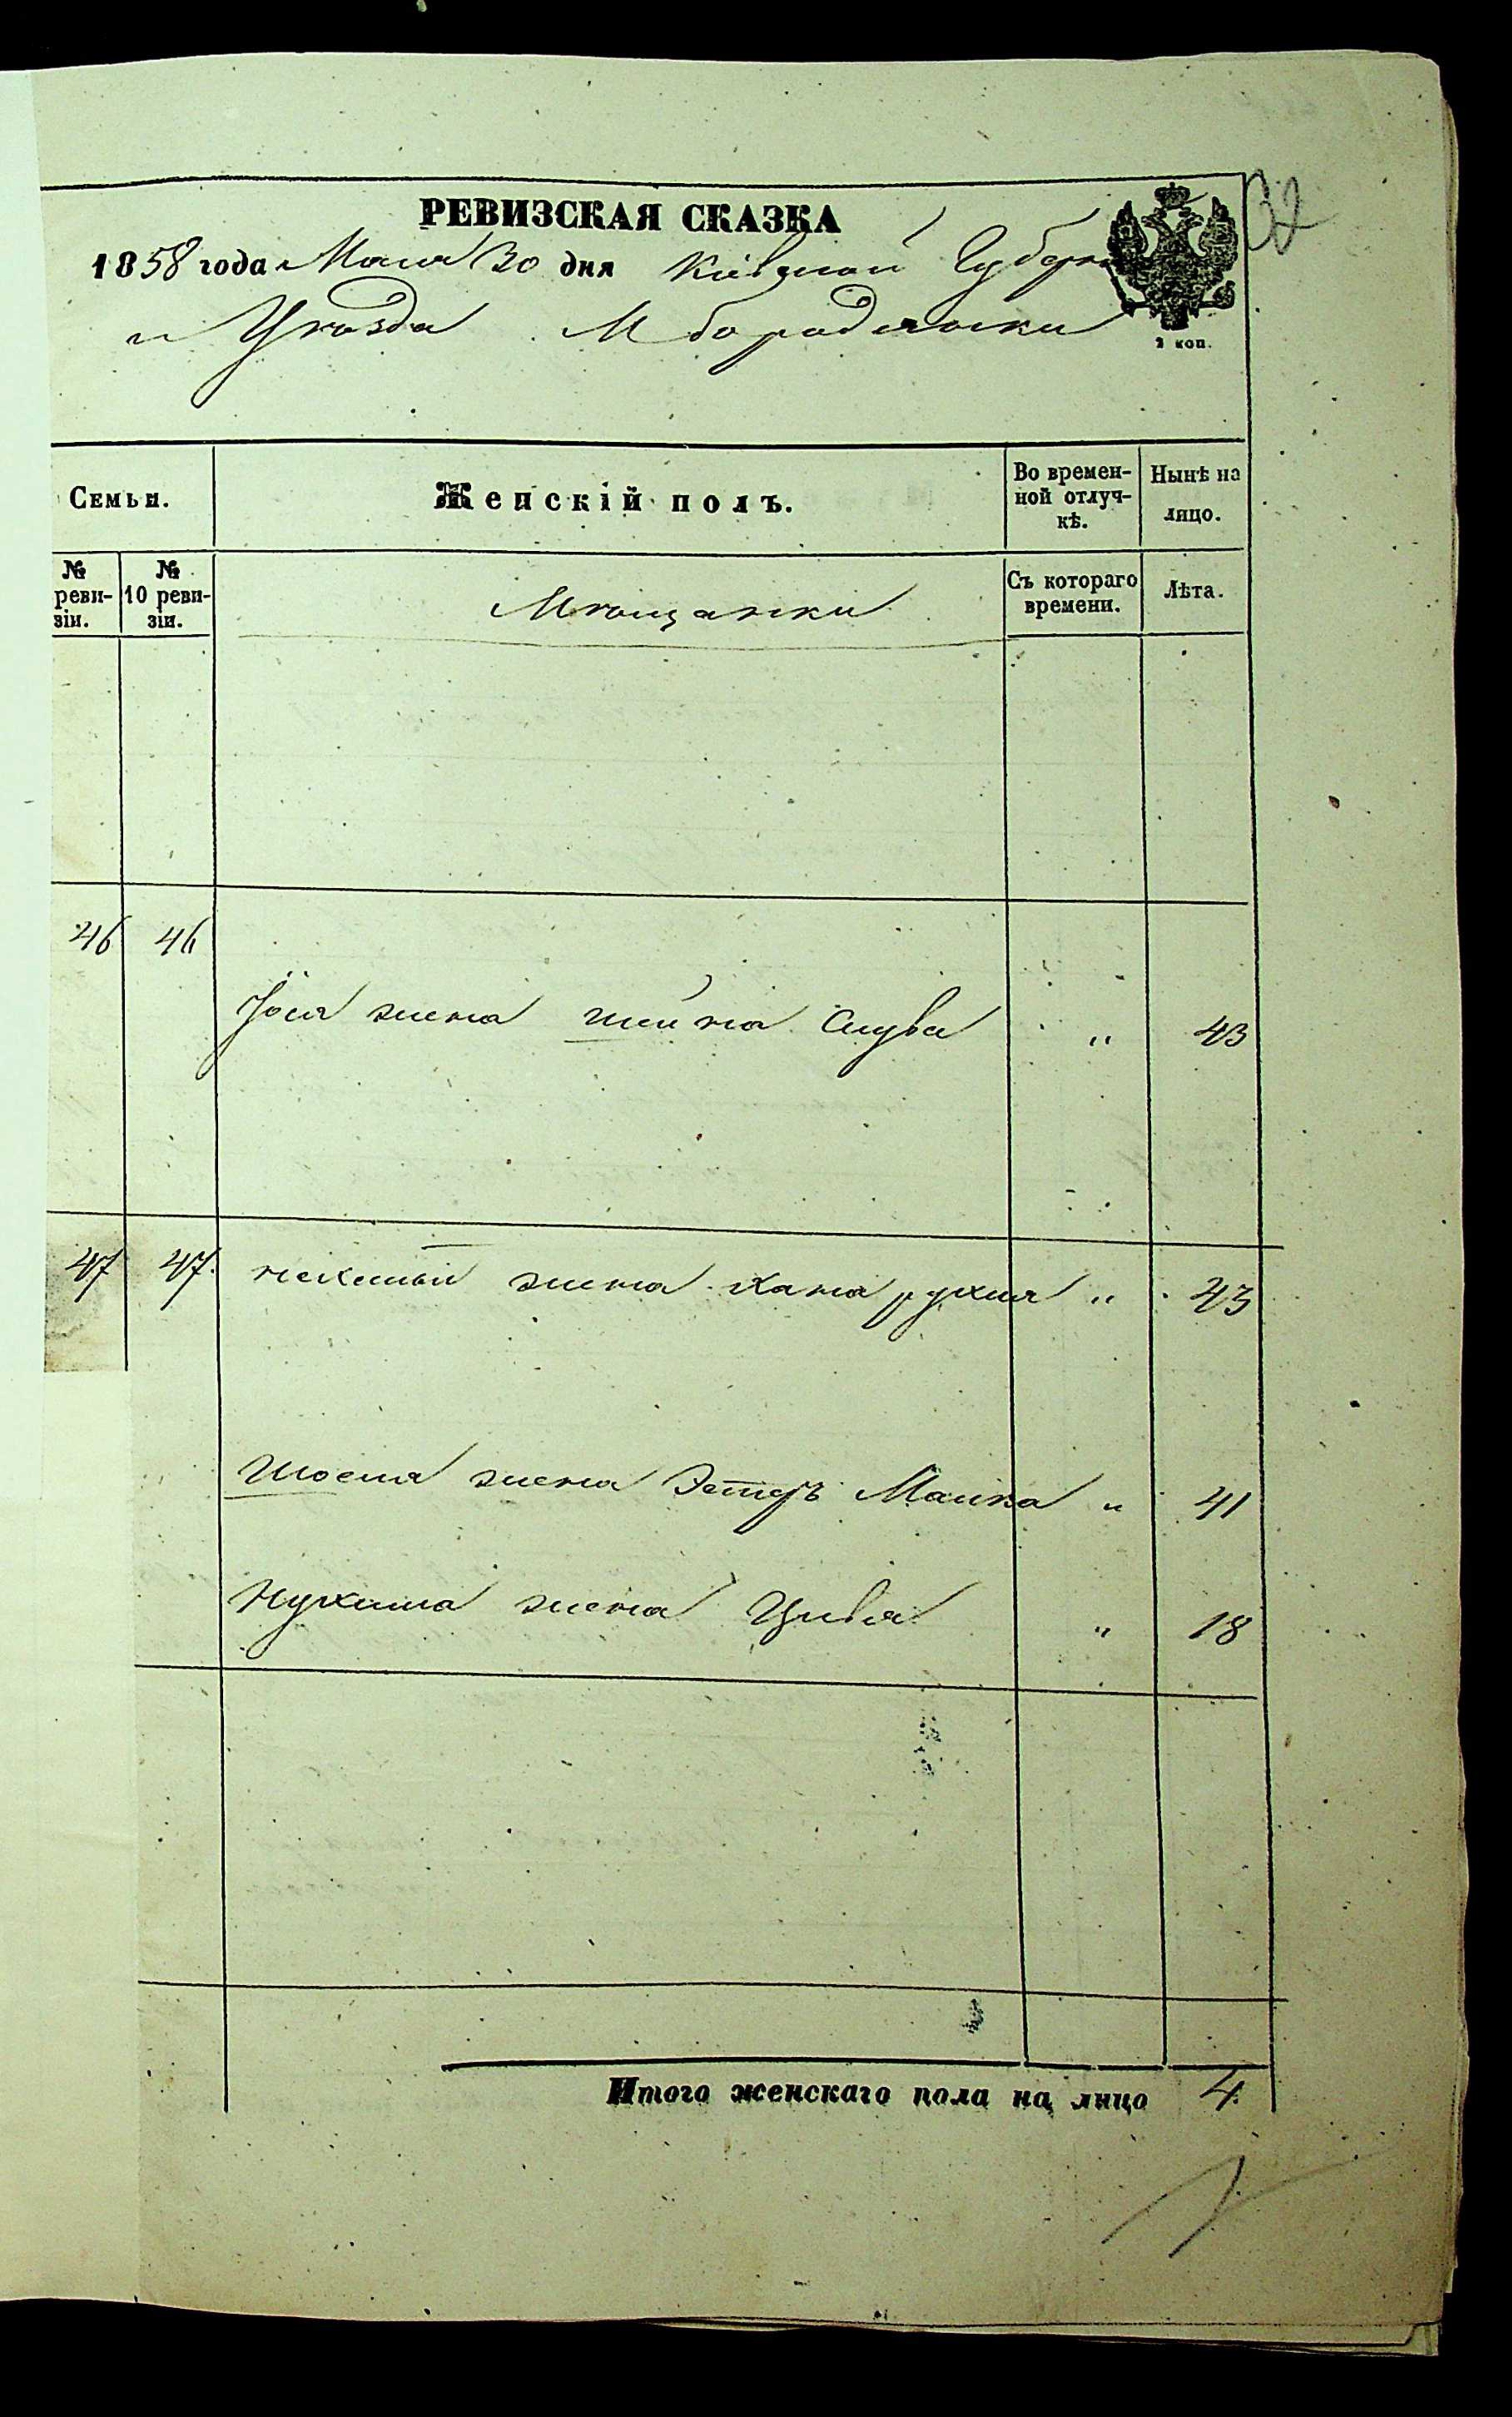 32
РЕВИЗСКАЯ СКАЗКА
1858 года Мая 30 дня Кіевской Губерн
и Уѣзда М Бородянки
2 коп.
Семьи.
Женскій полъ.
Во времен-
ной отлуч-
кѣ.
Нынѣ на
лицо.
№
реви-
зіи.
№
10 реви-
зіи.
Мѣщанки
Съ котораго
времени.
Лѣта.
46 46
Іося жена Шейна Слува " 43
47 47. жена Хана рухля " 43
жена Эстеръ Малка " 41
Нухима жена Цивья " 18
Итого женскаго пола на лицо 4.